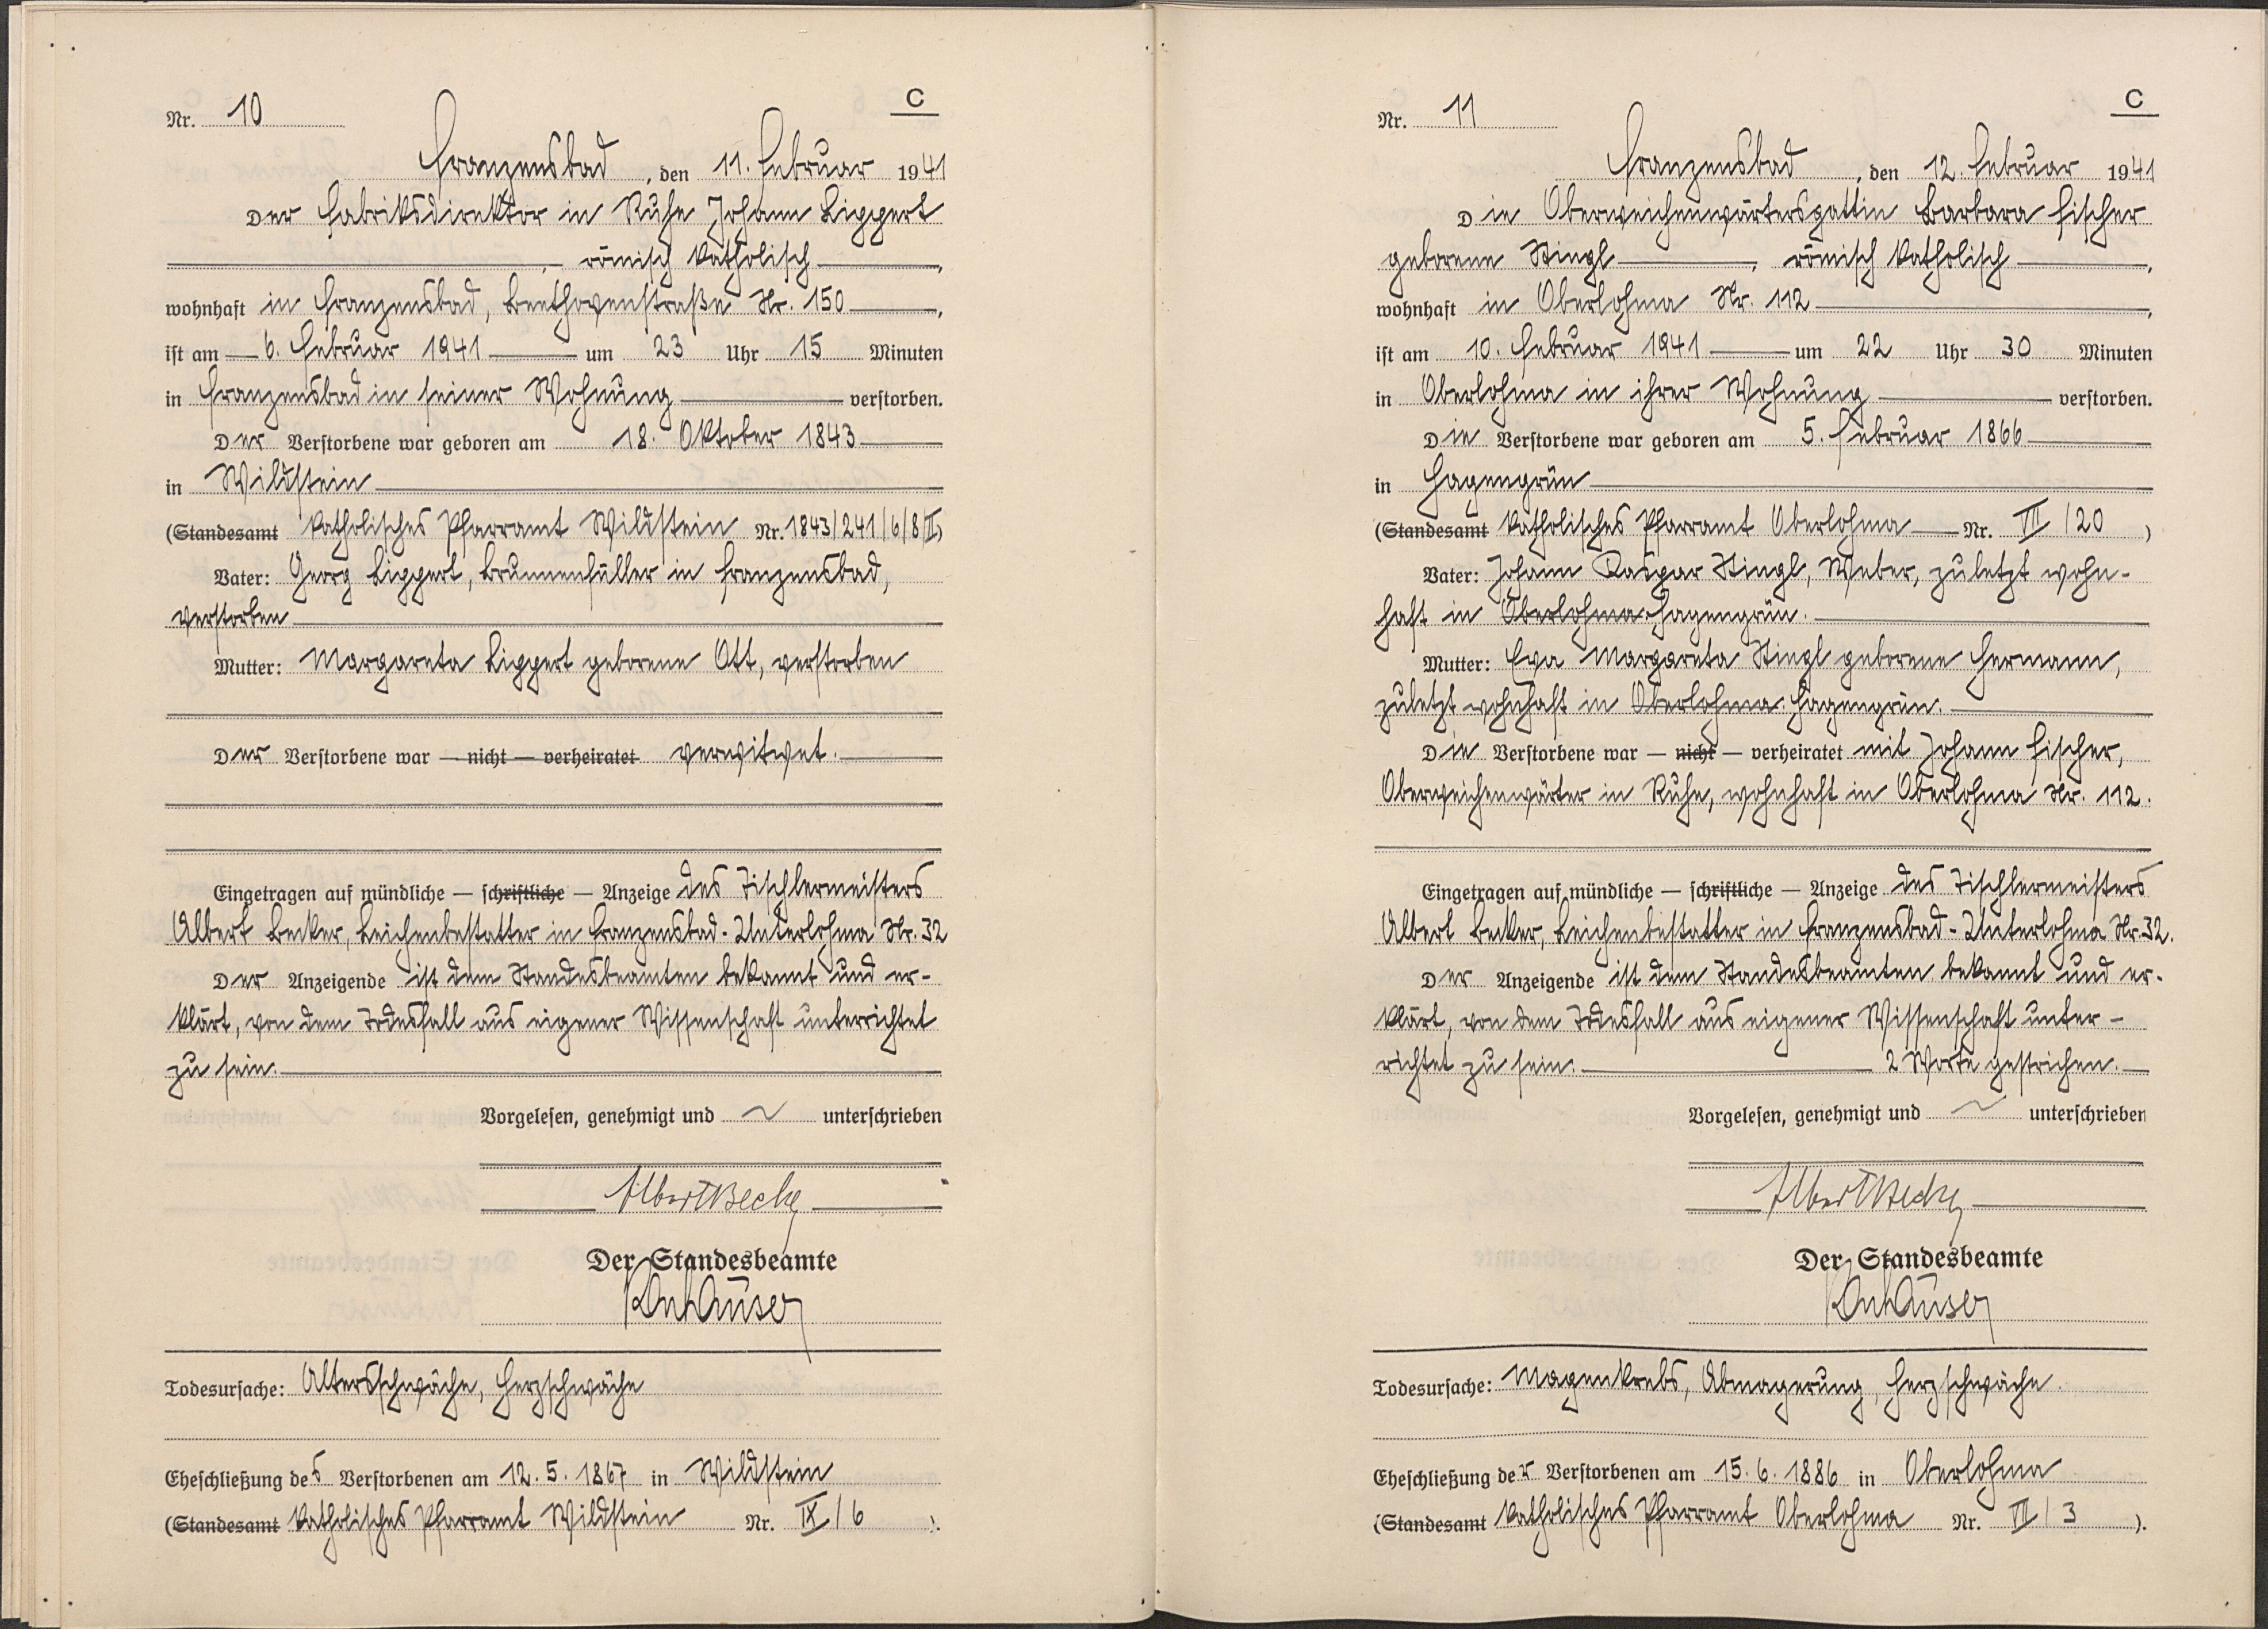 C
Nr. 10
Franzensbad, den 11. Februar 1941
Der Fabriksdirektor in Ruhe Johann Lippert
, römisch katholisch,
wohnhaft in Franzensbad, Beethovenstraße Nr. 150,
ist am 6. Februar 1941 um 23 Uhr 15 Minuten
in Franzensbad in seiner Wohnung verstorben.
Der Verstorbene war geboren am 18. Oktober 1843
in Wildstein
(Standesamt katholisches Pfarramt Wildstein Nr. 1843/241/6/8/II)
Vater: Georg Lippert, Brunnenfüller in Franzensbad,
verstorben
Mutter: Margareta Lippert geborene Ott, verstorben
Der Verstorbene war — nicht — verheiratet verwitwet.
Eingetragen auf mündliche — schriftliche — Anzeige des Tischlermeisters
Albert Becker, Leichenbestatter in Franzensbad-Unterlohma Nr. 32
Der Anzeigende ist dem Standesbeamten bekannt und er-
klärt, von dem Todesfall aus eigener Wissenschaft unterrichtet
zu sein.
Vorgelesen, genehmigt und unterschrieben
Albert Becker
Der Standesbeamte
Todesursache: Altersschwäche, Herzschwäche
Eheschließung des Verstorbenen am 12.5.1867 in Wildstein
(Standesamt katholisches Pfarramt Wildstein Nr. IX/6).
C
Nr. 11
Franzensbad, den 12. Februar 1941
Die Oberweichenwärtersgattin Barbara Fischer
geborene Stingl, römisch katholisch,
wohnhaft in Oberlohma Nr. 112,
ist am 10. Februar 1941 um 22 Uhr 30 Minuten
in Oberlohma in ihrer Wohnung verstorben.
Die Verstorbene war geboren am 5. Februar 1866
in Hagengrün
(Standesamt katholisches Pfarramt Oberlohma Nr. VII/20)
Vater: Johann Kaspar Stingl, Weber, zuletzt wohn-
haft in Oberlohma Hagengrün.
Mutter: Eva Margareta Stingl geborene Hermann,
zuletzt wohnhaft in Oberlohma Hagengrün.
Die Verstorbene war — nicht — verheiratet mit Johann Fischer,
Oberweichenwärter in Ruhe, wohnhaft in Oberlohma Nr. 112.
Eingetragen auf mündliche — schriftliche — Anzeige des Tischlermeisters
Albert Becker, Leichenbestatter in Franzensbad-Unterlohma Nr. 32.
Der Anzeigende ist dem Standesbeamten bekannt und er-
klärt, von dem Todesfall aus eigener Wissenschaft unter-
richtet zu sein. 2 Worte gestrichen.
Vorgelesen, genehmigt und unterschrieben
Albert Becker
Der Standesbeamte
Todesursache: Magenkrebs, Abmagerung, Herzschwäche.
Eheschließung der Verstorbenen am 15.6.1886 in Oberlohma
(Standesamt katholisches Pfarramt Oberlohma Nr. VII/3).